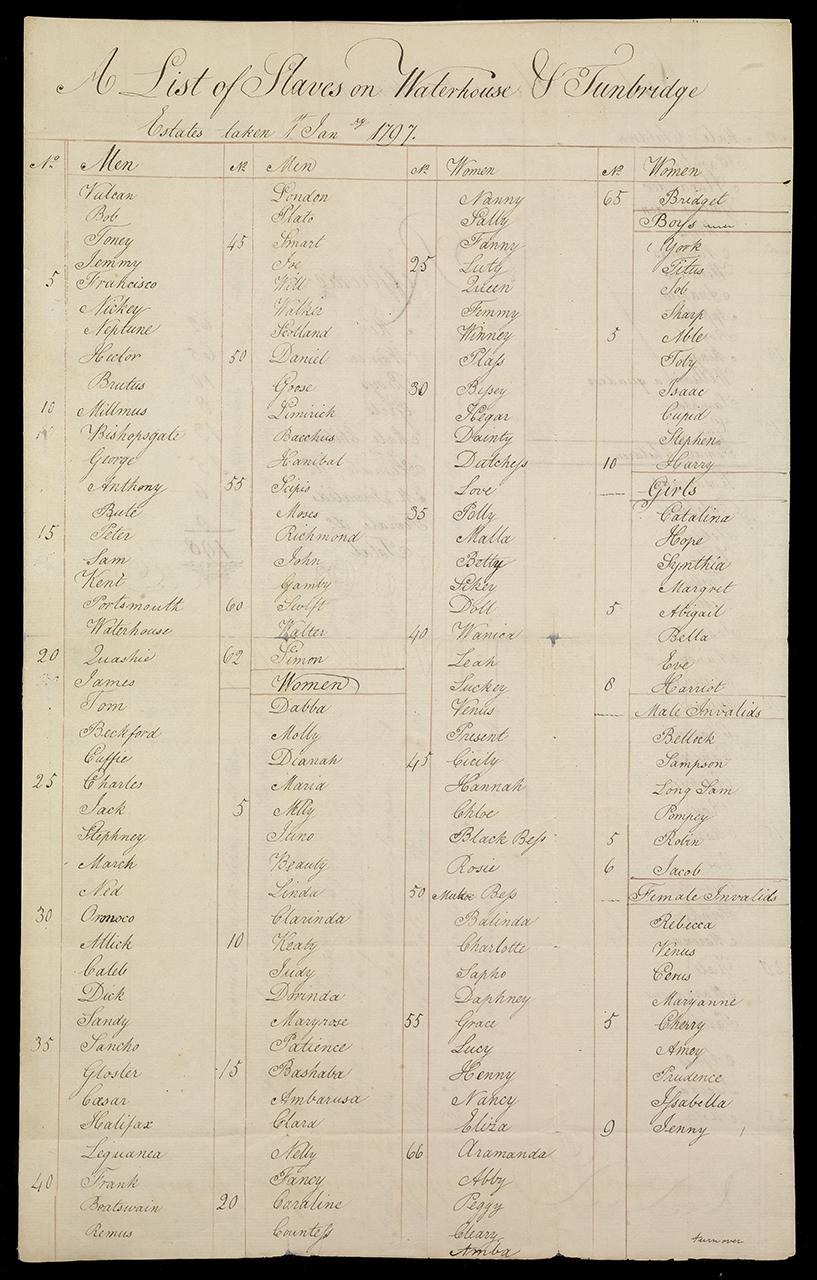 A List of Slaves on Waterhouse & Tunbridge
Estates taken 1st Jany 1797.
No Men
Vulcan
Bob
Toney
Jemmy
5 Francisco
Nickey
Neptune
Hector
Brutus
10 Millmus
Bishopsgate
George
Anthony
Bute
15 Peter
Sam
Kent
Portsmouth
Waterhouse
20 Quashie
James
Tom
Beckford
Cuffie
25 Charles
Jack
Stephney
March
Ned
30 Oronoco
Allick
Caleb
Dick
Sandy
35 Sancho
Gloster
Casar
Halifax
Liguanea
40 Frank
Boatswain
Remus
No Men
London
Plato
45 Smart
Joe
Will
Walker
Scotland
50 Daniel
Goose
Limirick
Bacchus
Hanibal
55 Scipio
Moses
Richmond
John
Gamby
60 Swift
Walter
62 Simon
Women
Dabba
Molly
Dianah
Maria
5 Milly
Juno
Beauty
Linda
Clarinda
10 Keaty
Judy
Dorinda
Maryrose
Patience
15 Bashaba
Ambarusa
Clara
Nelly
Fancy
20 Caraline
Countess
No Women
Nanny
Sally
Fanny
25 Luty
Queen
Femmy
Winney
Plass
30 Bissey
Hegar
Dainty
Dutchess
Love
35 Polly
Malla
Betty
Doll
40 Wanica
Leah
Suckey
Venus
Present
45 Cicily
Hannah
Chloe
Black Bess
Rosie
50 Bess
Balinda
Charlotte
Sapho
Daphney
55 Grace
Lucy
Henny
Nancy
Eliza
66 Aramanda
Abby
Peggy
Cleary
Amba
No Women
65 Bridget
Boys
York
Titus
Job
Sharp
5 Able
Toby
Isaac
Cupid
Stephen
10 Harry
Girls
Catalina
Hope
Synthia
Margret
5 Abigail
Bella
Eve
8 Harriot
Male Invalids
Bellock
Sampson
Long Sam
Pompey
5 Robin
6 Jacob
Female Invalids
Rebecca
Venus
Cerus
Maryanne
5 Cherry
Amey
Prudence
Issabella
9 Jenny
turn over